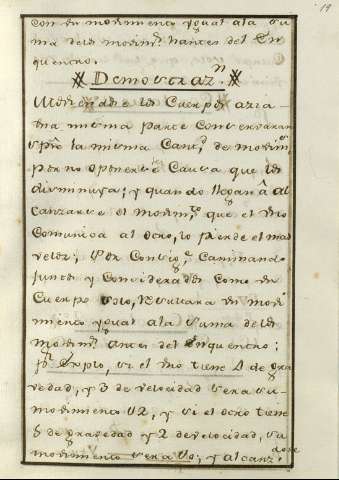 19
con un movimiento ygual ala su
ma delos movim.tos hantes del En
quentro.
Demostraz.n
Moviendose los Cuerpos azia
una misma parte conservaran
spre la misma Cant.d de movim.to
por no oponerse Causa que los
disminuya; y quando llegan â al
canzarse el movim.to que el uno
comunica al otro, lo pierde el mas
veloz; Caminando
juntos y Considerados Como un
Cuerpo solo, Resultara un movi
miento ygual ala Suma delos
movim.tos antes del Enquentro;
si el uno tiene 4 de gra
vedad, y 3 de velocidad sera su
movimiento 12, y si el otro tiene
5 de gravedad y 2 de velocidad, su
movimiento sera 10; y alcanz
dose